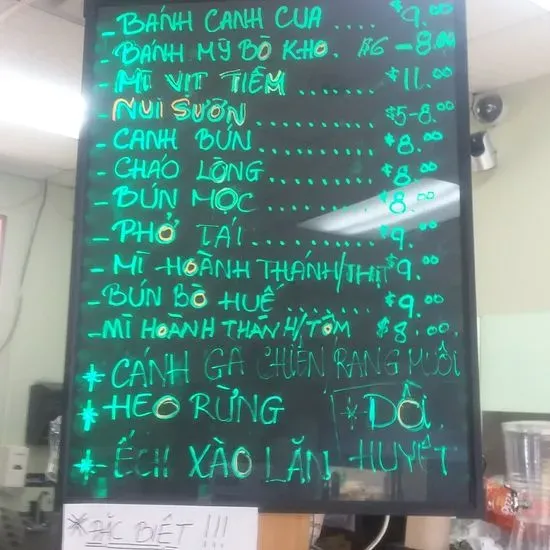 - BÁNH CANH CUA .... $9.00
- BÁNH MỲ BÒ KHO. $6 - 8.00
- MÌ VỊT TIỀM ....... $11.00
- NUI SƯỜN ........... $5-8.00
- CANH BÚN ......... $8.00
- CHÁO LÒNG .......... $8.00
- BÚN MỌC ........... $8.00
- PHỞ TÁI ........... $9.00
- MÌ HOÀNH THÁNH/THỊT $9.00
- BÚN BÒ HUẾ ....... $9.00
- MÌ HOÀNH THÁNH/TÔM $8.00
* CÁNH GÀ CHIÊN RANG MUỐI
* HEO RỪNG
* DỒI HUYẾT
* ẾCH XÀO LĂN
*ĐẶC BIỆT !!!